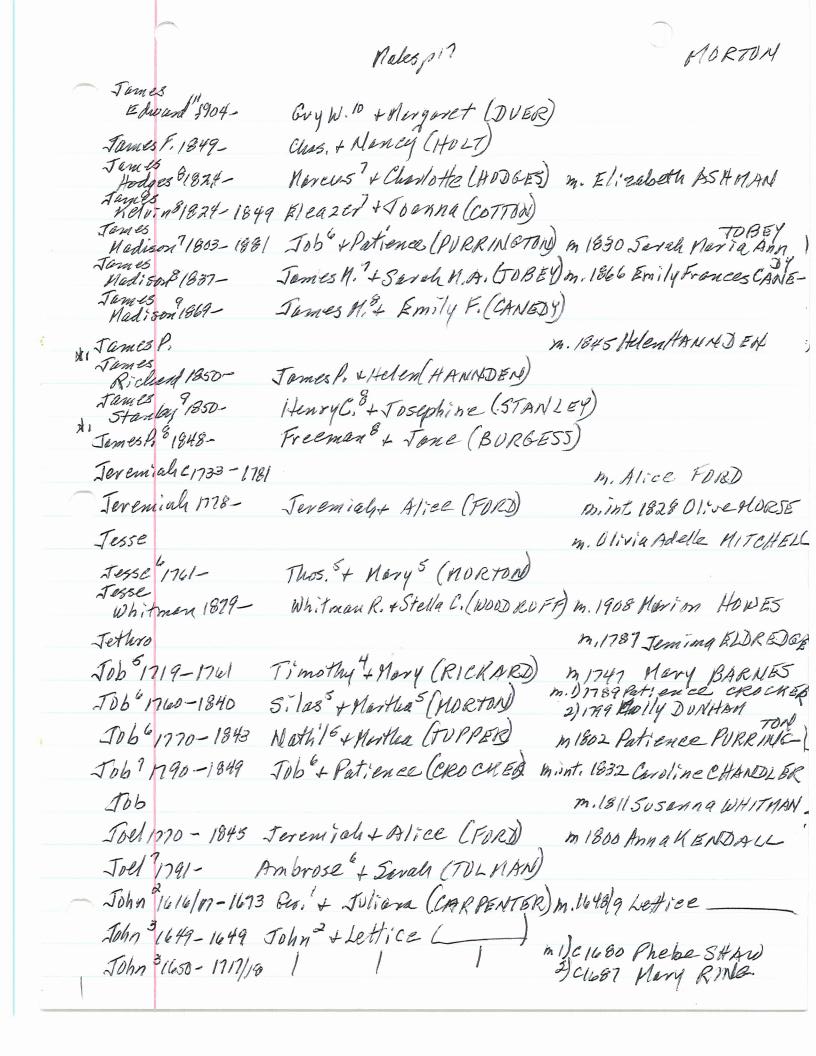 Males p17 MORTON
James
Edward 11 1904- Guy W.10 + Margaret (DUER)
James F. 1849- Chas. + Nancy (HOLT)
James
Hodges 8 1824- Marcus 7 + Charlotte (HODGES) m. Elizabeth ASHMAN
James
Kelvin 8 1824-1849 Eleazer 7 + Joanna (COTTON)
James TOBEY
Madison 7 1803-1881 Job 6 + Patience (PURRINGTON) m 1830 Sarah Maria Ann
James DY
Madison 8 1837- James M.7 + Sarah M.A. (TOBEY) m. 1866 Emily Frances CANE-
James
Madison 9 1869- James M.8 + Emily F. (CANEDY)
*1 James P. m. 1845 Helen HANNDEN
James
Richard 1850- James P. + Helen (HANNDEN)
James
Stanley 9 1850- Henry C.8 + Josephine (STANLEY)
*1 James P. 8 1848- Freeman 8 + Jane (BURGESS)
Jeremiah c1733-1781 m. Alice FORD
Jeremiah 1778- Jeremiah + Alice (FORD) m.int. 1828 Olive MORSE
Jesse m. Olivia Adelle MITCHELL
Jesse 6 1761- Thos.5 + Mary 5 (MORTON)
Jesse
Whitman 1879- Whitman R. + Stella C. (WOODRUFF) m. 1908 Marion HOWES
Jethro m. 1787 Jemima ELDREDGE
Job 5 1719-1761 Timothy 4 + Mary (RICKARD) m 1747 Mary BARNES
m. 1) 1789 Patience CROCKER
Job 6 1760-1840 Silas 5 + Martha 5 (MORTON) 2) 1799 Polly DUNHAM
TON
Job 6 1770-1843 Nath'l 5 + Martha (TUPPER) m 1802 Patience PURRING-
Job 7 1790-1849 Job 6 + Patience (CROCKER) m.int. 1832 Caroline CHANDLER
Job m. 1811 Susanna WHITMAN
Joel 1770-1845 Jeremiah + Alice (FORD) m 1800 Anna KENDALL
Joel 7 1791- Ambrose 6 + Sarah (TOLMAN)
John 2 1616/17-1673 Geo.1 + Juliana (CARPENTER) m. 1648/9 Lettice
John 3 1649-1649 John 2 + Lettice ( )
m 1) c1680 Phebe SHAW
John 3 1650-1717/18 | | | 2) c1687 Mary RING